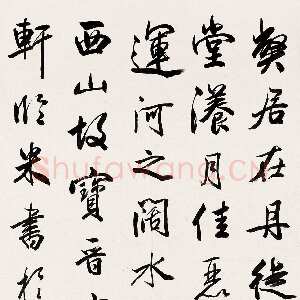 弊居在丹徒
堂瀁月佳麗
運河之闊水
西山故寶晉
軒臨米書於
Shufawang.CN